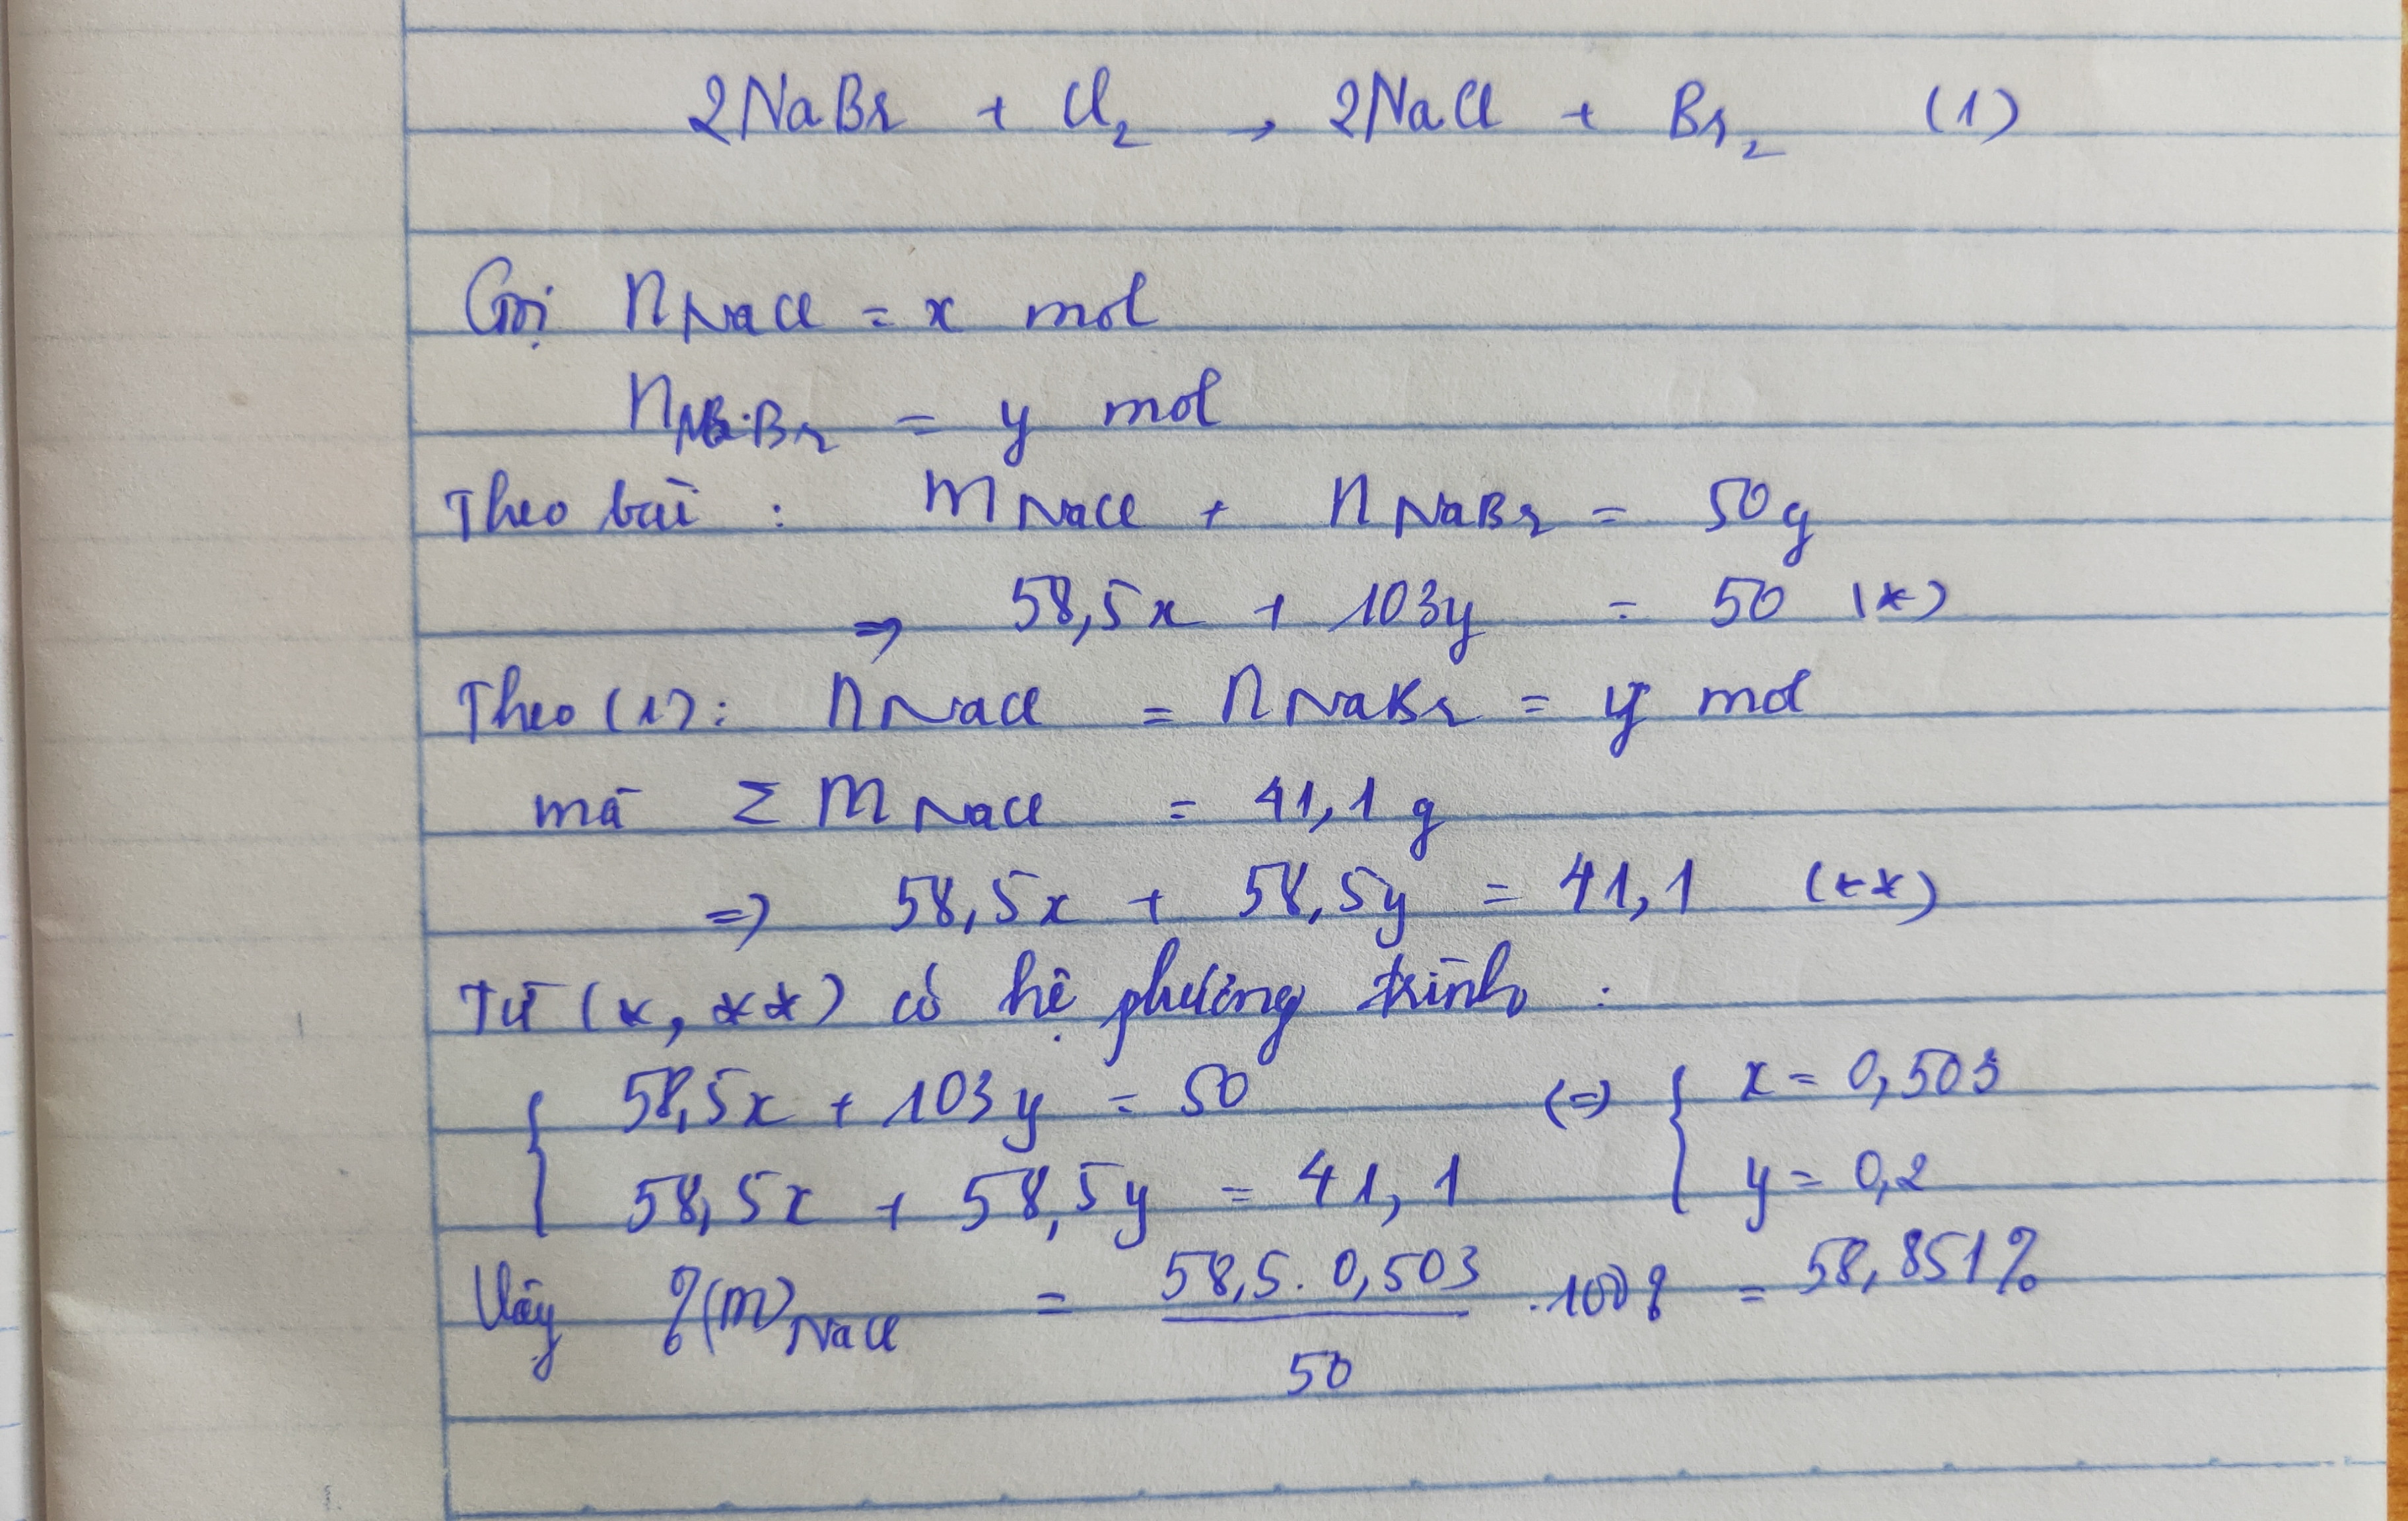 2NaBr + Cl₂ → 2NaCl + Br₂ (1)
Gọi nNaCl = x mol
nNaBr = y mol
Theo bài : mNaCl + nNaBr = 50g
⇒ 58,5x + 103y = 50 (*)
Theo (1): nNaCl = nNaBr = y mol
mà Σ mNaCl = 41,1 g
=> 58,5x + 58,5y = 41,1 (**)
Từ (*, **) có hệ phương trình :
{ 58,5x + 103y = 50 (=) { x = 0,503
58,5x + 58,5y = 41,1 y = 0,2
Vậy %(m)NaCl = 58,5. 0,503 / 50 .100% = 58,851%